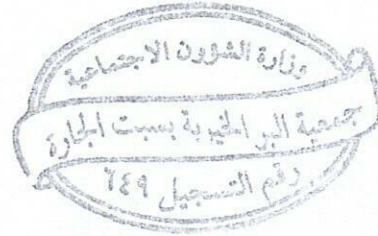 وزارة الشؤون الاجتماعية
جمعية البر الخيرية بسبت الجارة
رقم التسجيل ٦٤٩